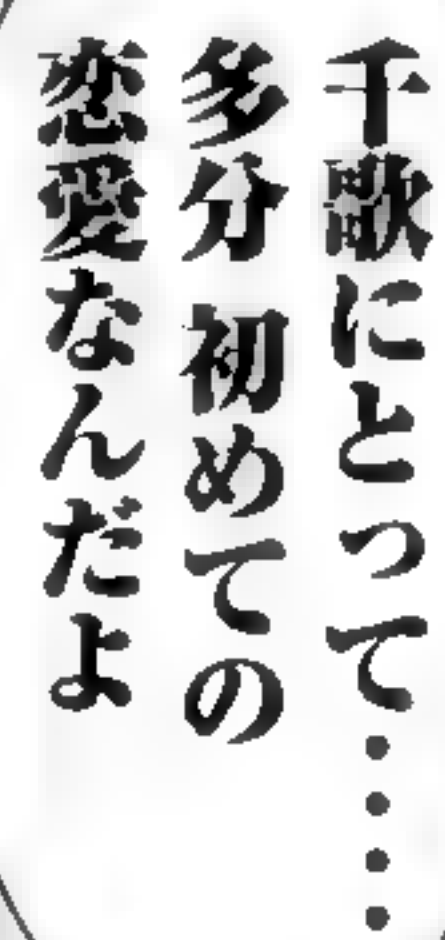 千歌にとって・・・・
多分 初めての
恋愛なんだよ